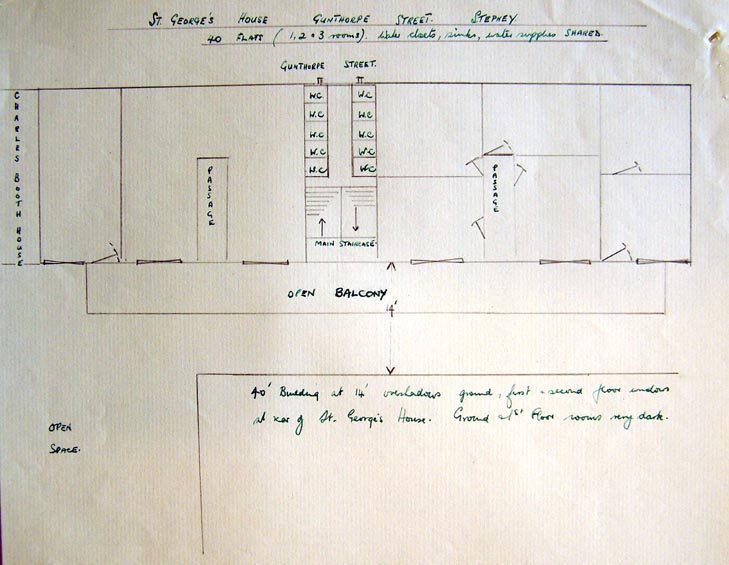 ST. GEORGE'S HOUSE GUNTHORPE STREET. STEPNEY
40 FLATS (1, 2 & 3 rooms). Water closets, sinks, water supplies SHARED.
GUNTHORPE STREET.
CHARLES BOOTH HOUSE
W.C W.C
W.C W.C
W.C W.C
W.C W.C
W.C W.C
PASSAGE
PASSAGE
MAIN STAIRCASE.
OPEN BALCONY
14'
40' Building at 14' overshadows ground, first & second floor windows
at rear of St. George's House. Ground & 1st Floor rooms very dark.
OPEN
SPACE.